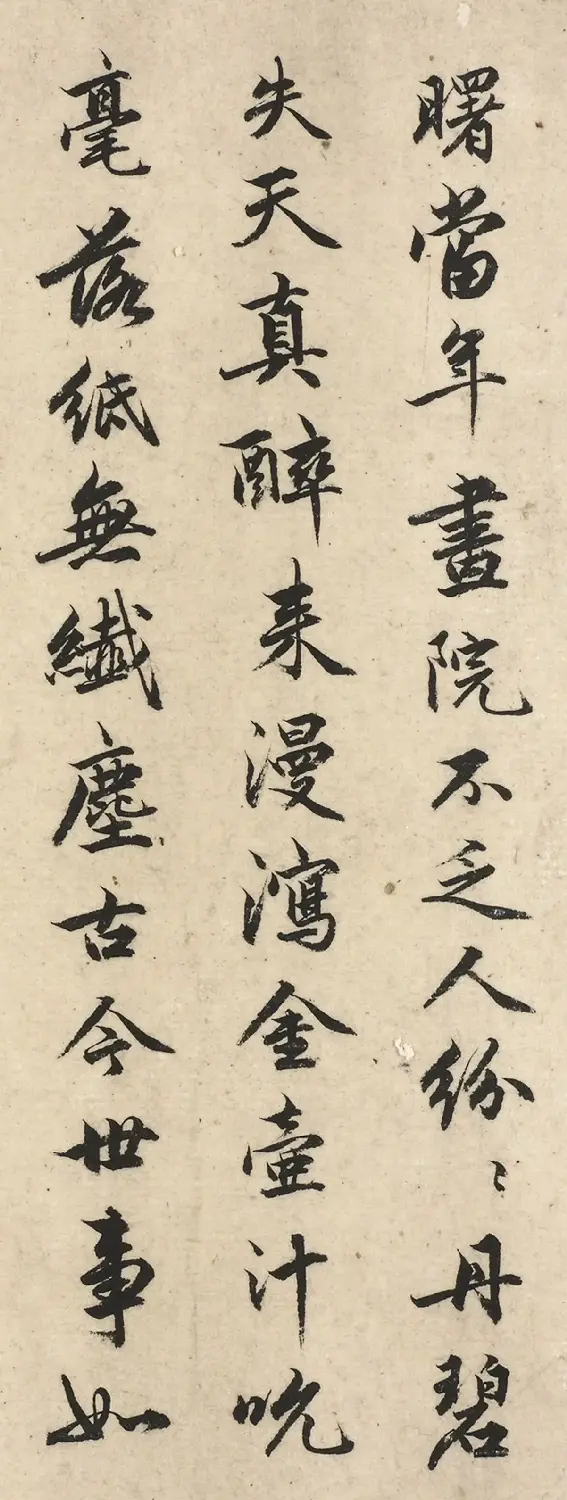 曙當年畫院不乏人紛〻丹碧
失天真醉来漫瀉金壺汁吮
毫落紙無纖塵古今世事如